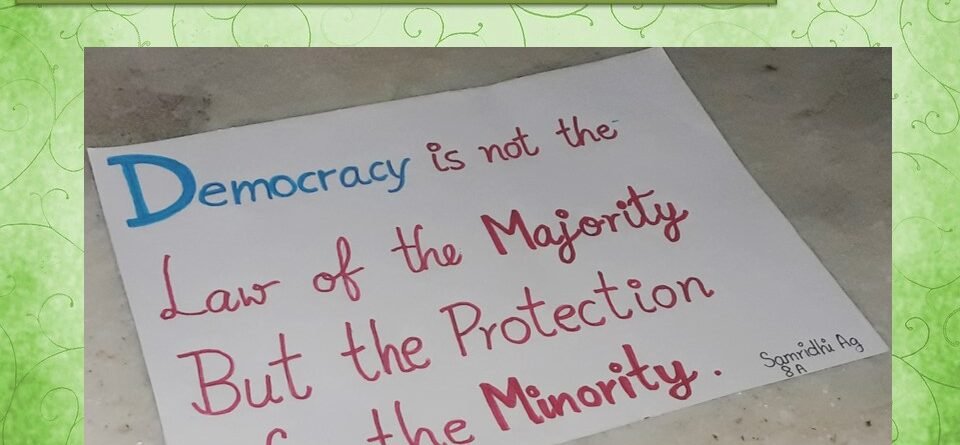 Democracy is not the
Law of the Majority
But the Protection
the Minority.
Samridhi Ag
8A